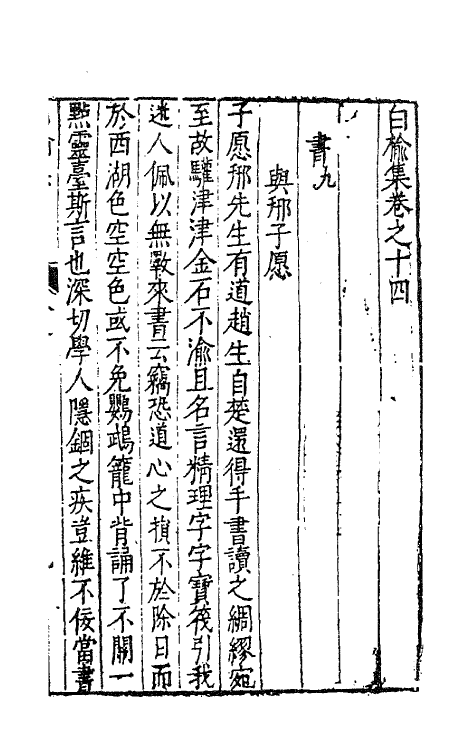 白榆集卷之十四
書九
與邢子愿
子愿邢先生有道趙生自楚還得手書讀之綢繆宛
至故驩津津金石不渝且名言精理字字寶筏引我
迷人佩以無斁來書云竊恐道心之損不於除日而
於西湖色空空色或不免鸚鵡籠中背誦了不關一
點靈臺斯言也深切學人隱錮之疾豈維不佞當書